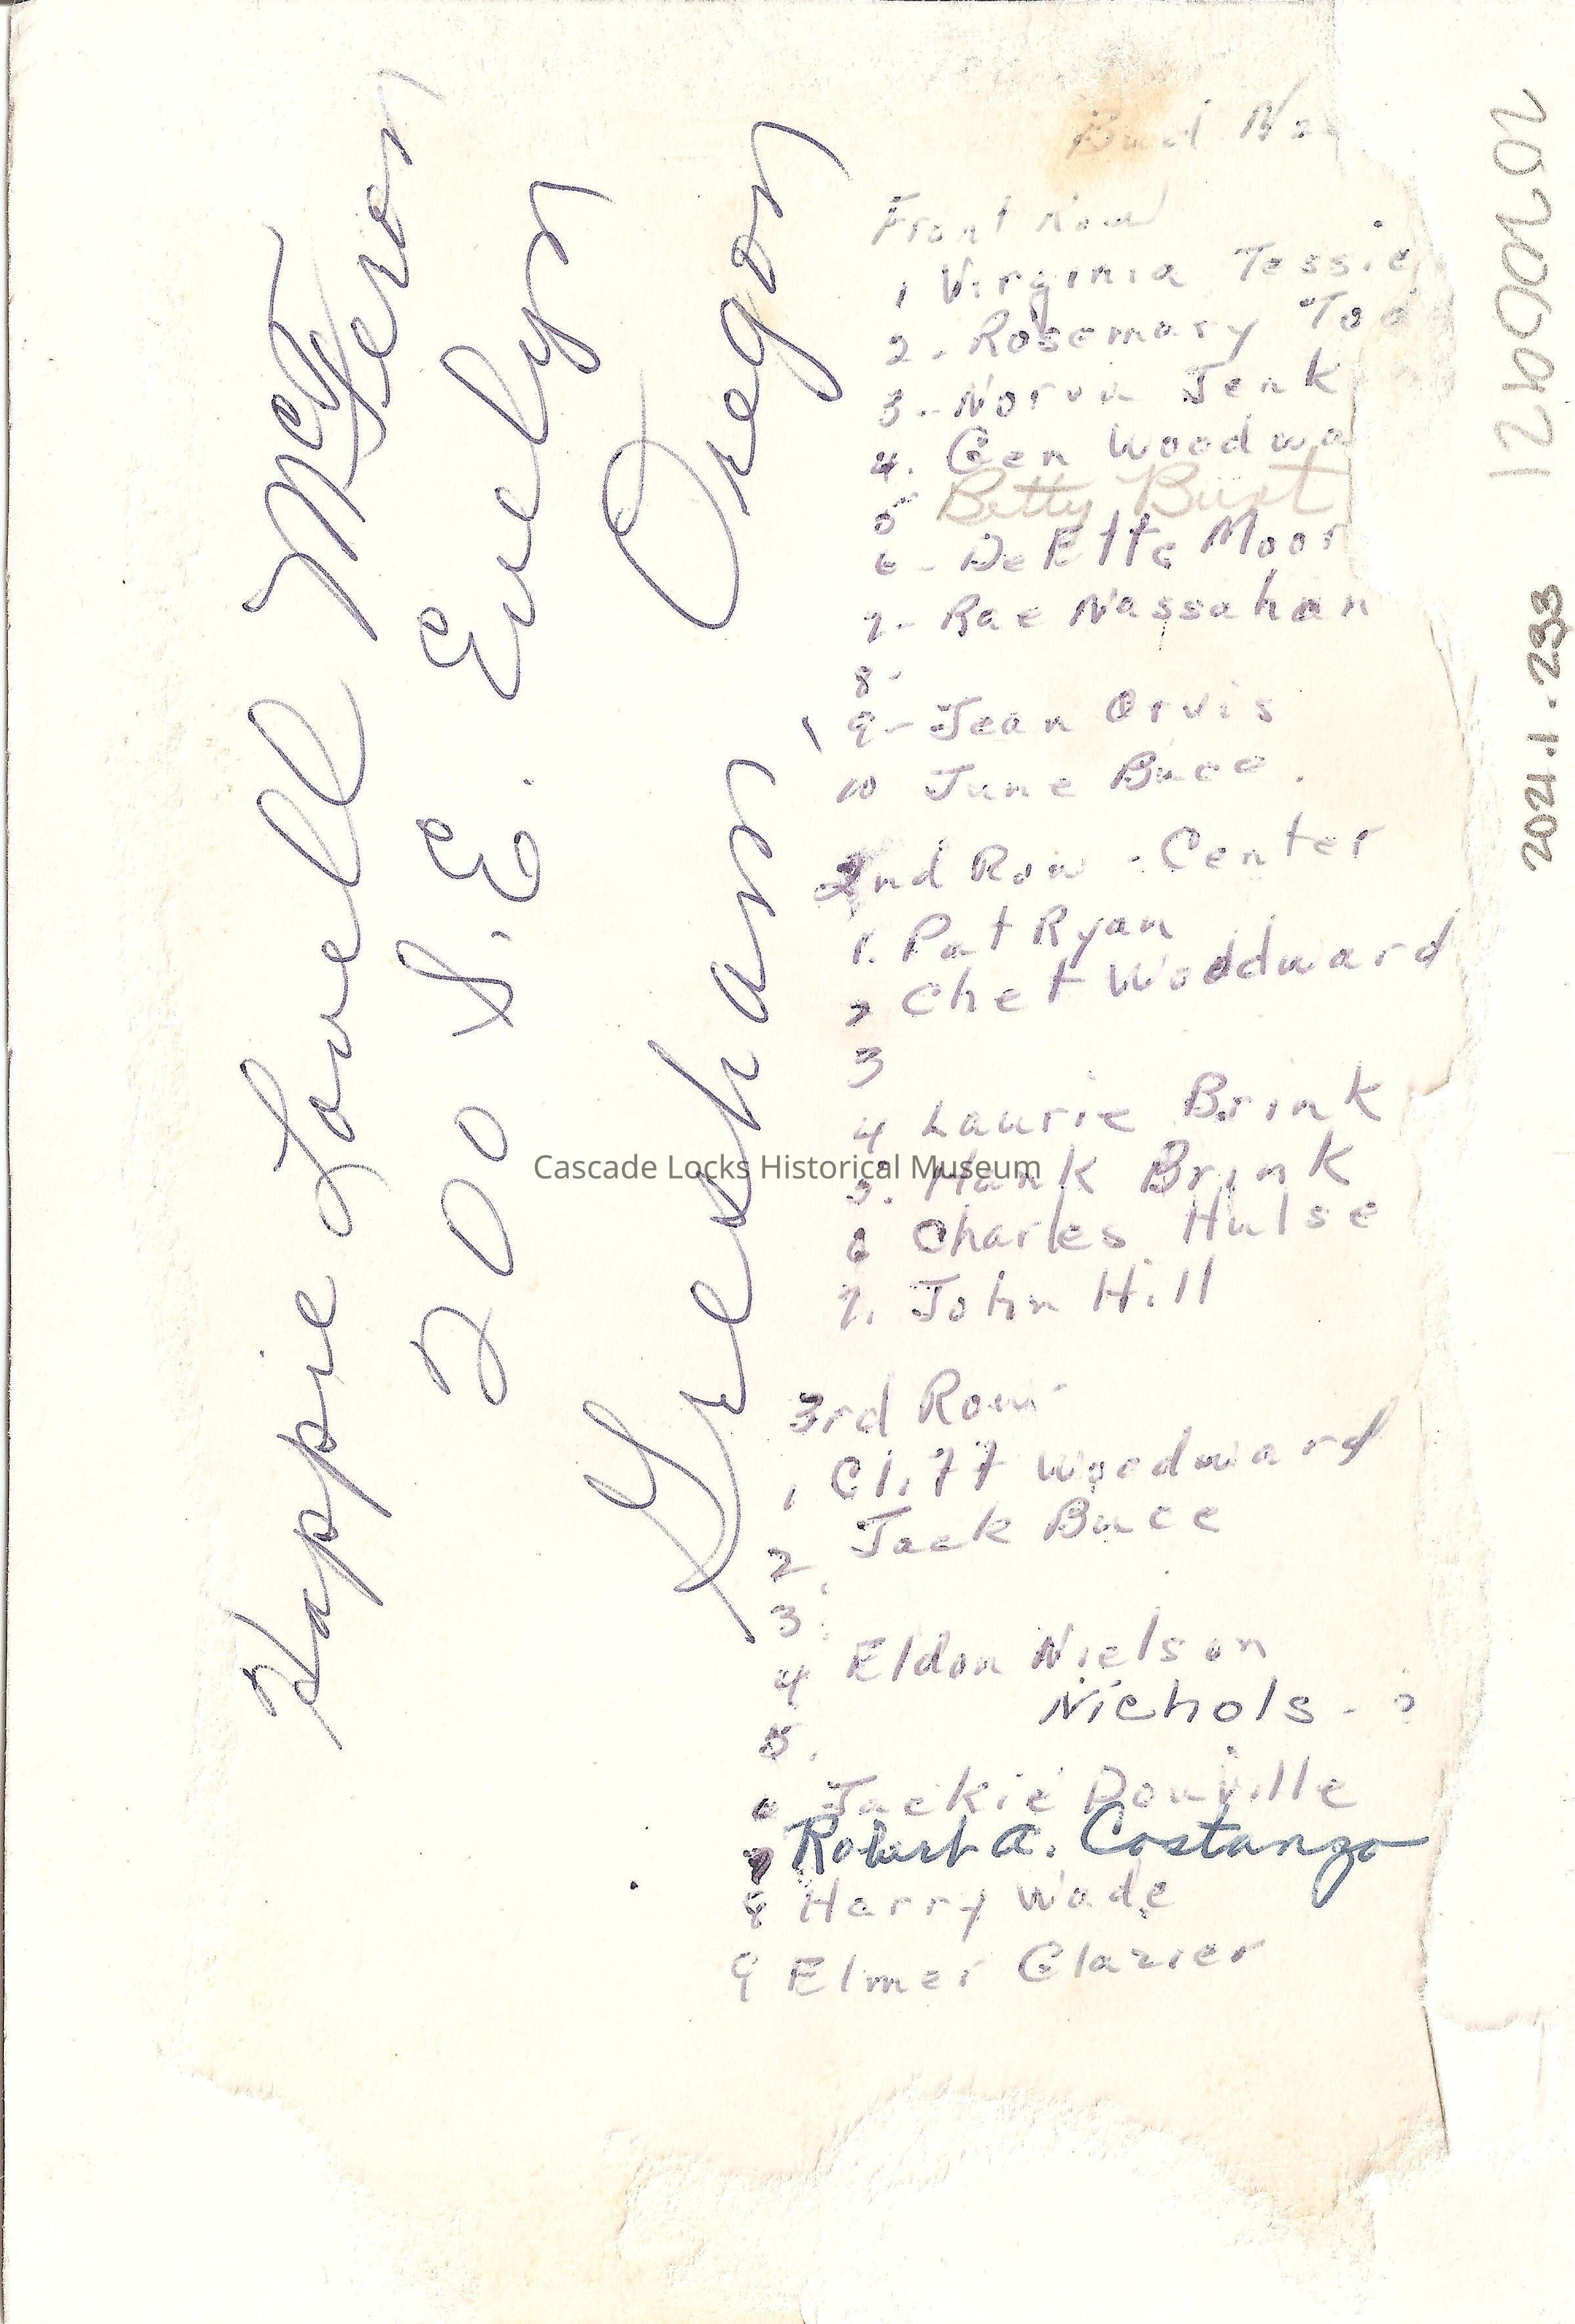 Bud
Front Row
1 Virginia Tessie
2. Rosemary Tod
3. Norva Jenk
4. Gen Woodwa
5 Betty Burt
6- DeEtte Moor
7- Rae Nassahan
8-
9- Jean Orvis
10 June Buce
2nd Row - Center
1. Pat Ryan
2 Chet Woodward
3
4 Laurie Brink
5. Hank Brink
6 Charles Hulse
7. John Hill
3rd Row
1 Cliff Woodward
2 Jack Buce
3
4 Eldon Nielson
Nichols - ?
5.
6 Jackie Douville
7 Robert A. Costanzo
8 Harry Wade
9 Elmer Glazier
Happie Lovell
200 S.E. Evelyn
Gresham, Oregon
2021.1.233
Cascade Locks Historical Museum